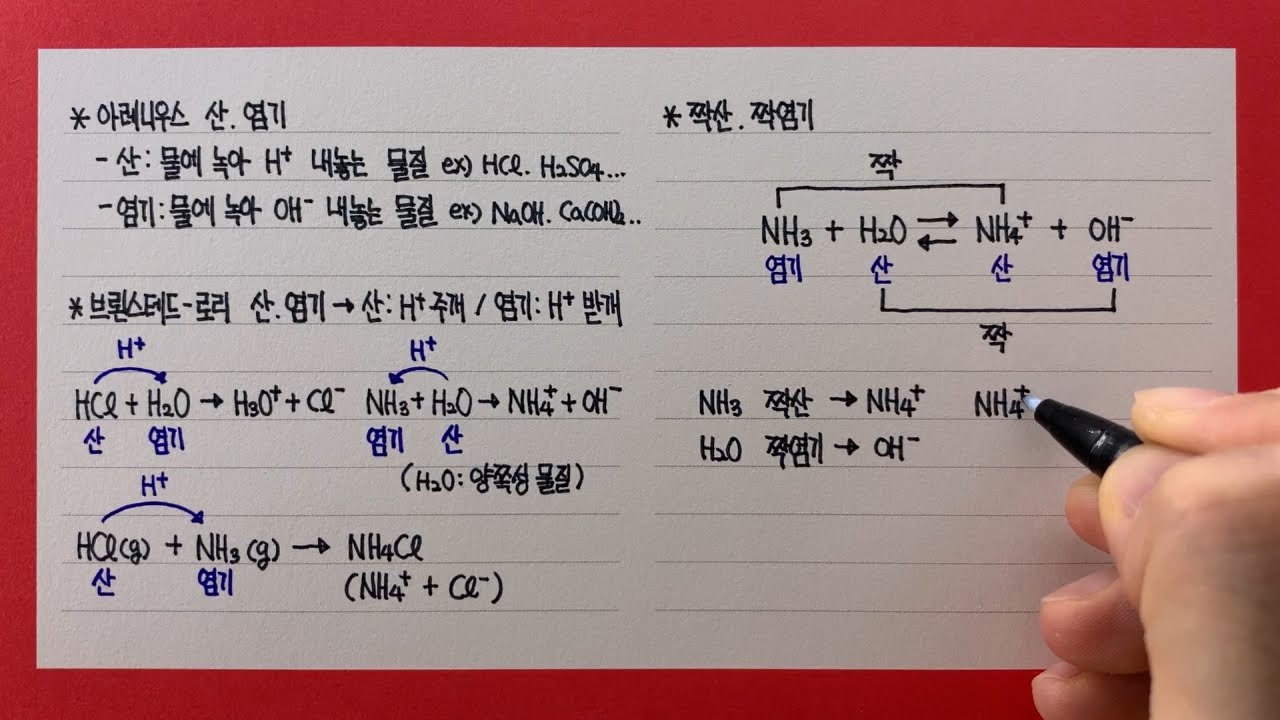 * 아레니우스 산. 염기
- 산: 물에 녹아 H⁺ 내놓는 물질 ex) HCl. H₂SO₄...
- 염기: 물에 녹아 OH⁻ 내놓는 물질 ex) NaOH. Ca(OH)₂..
* 브뢴스테드-로리 산.염기 → 산: H⁺ 주개 / 염기: H⁺ 받개
H⁺ H⁺
HCl + H₂O → H₃O⁺ + Cl⁻ NH₃ + H₂O → NH₄⁺ + OH⁻
산 염기 염기 산
(H₂O: 양쪽성 물질)
H⁺
HCl(g) + NH₃(g) → NH₄Cl
산 염기 (NH₄⁺ + Cl⁻)
* 짝산. 짝염기
짝
NH₃ + H₂O ⇄ NH₄⁺ + OH⁻
염기 산 산 염기
짝
NH₃ 짝산 → NH₄⁺ NH₄⁺
H₂O 짝염기 → OH⁻